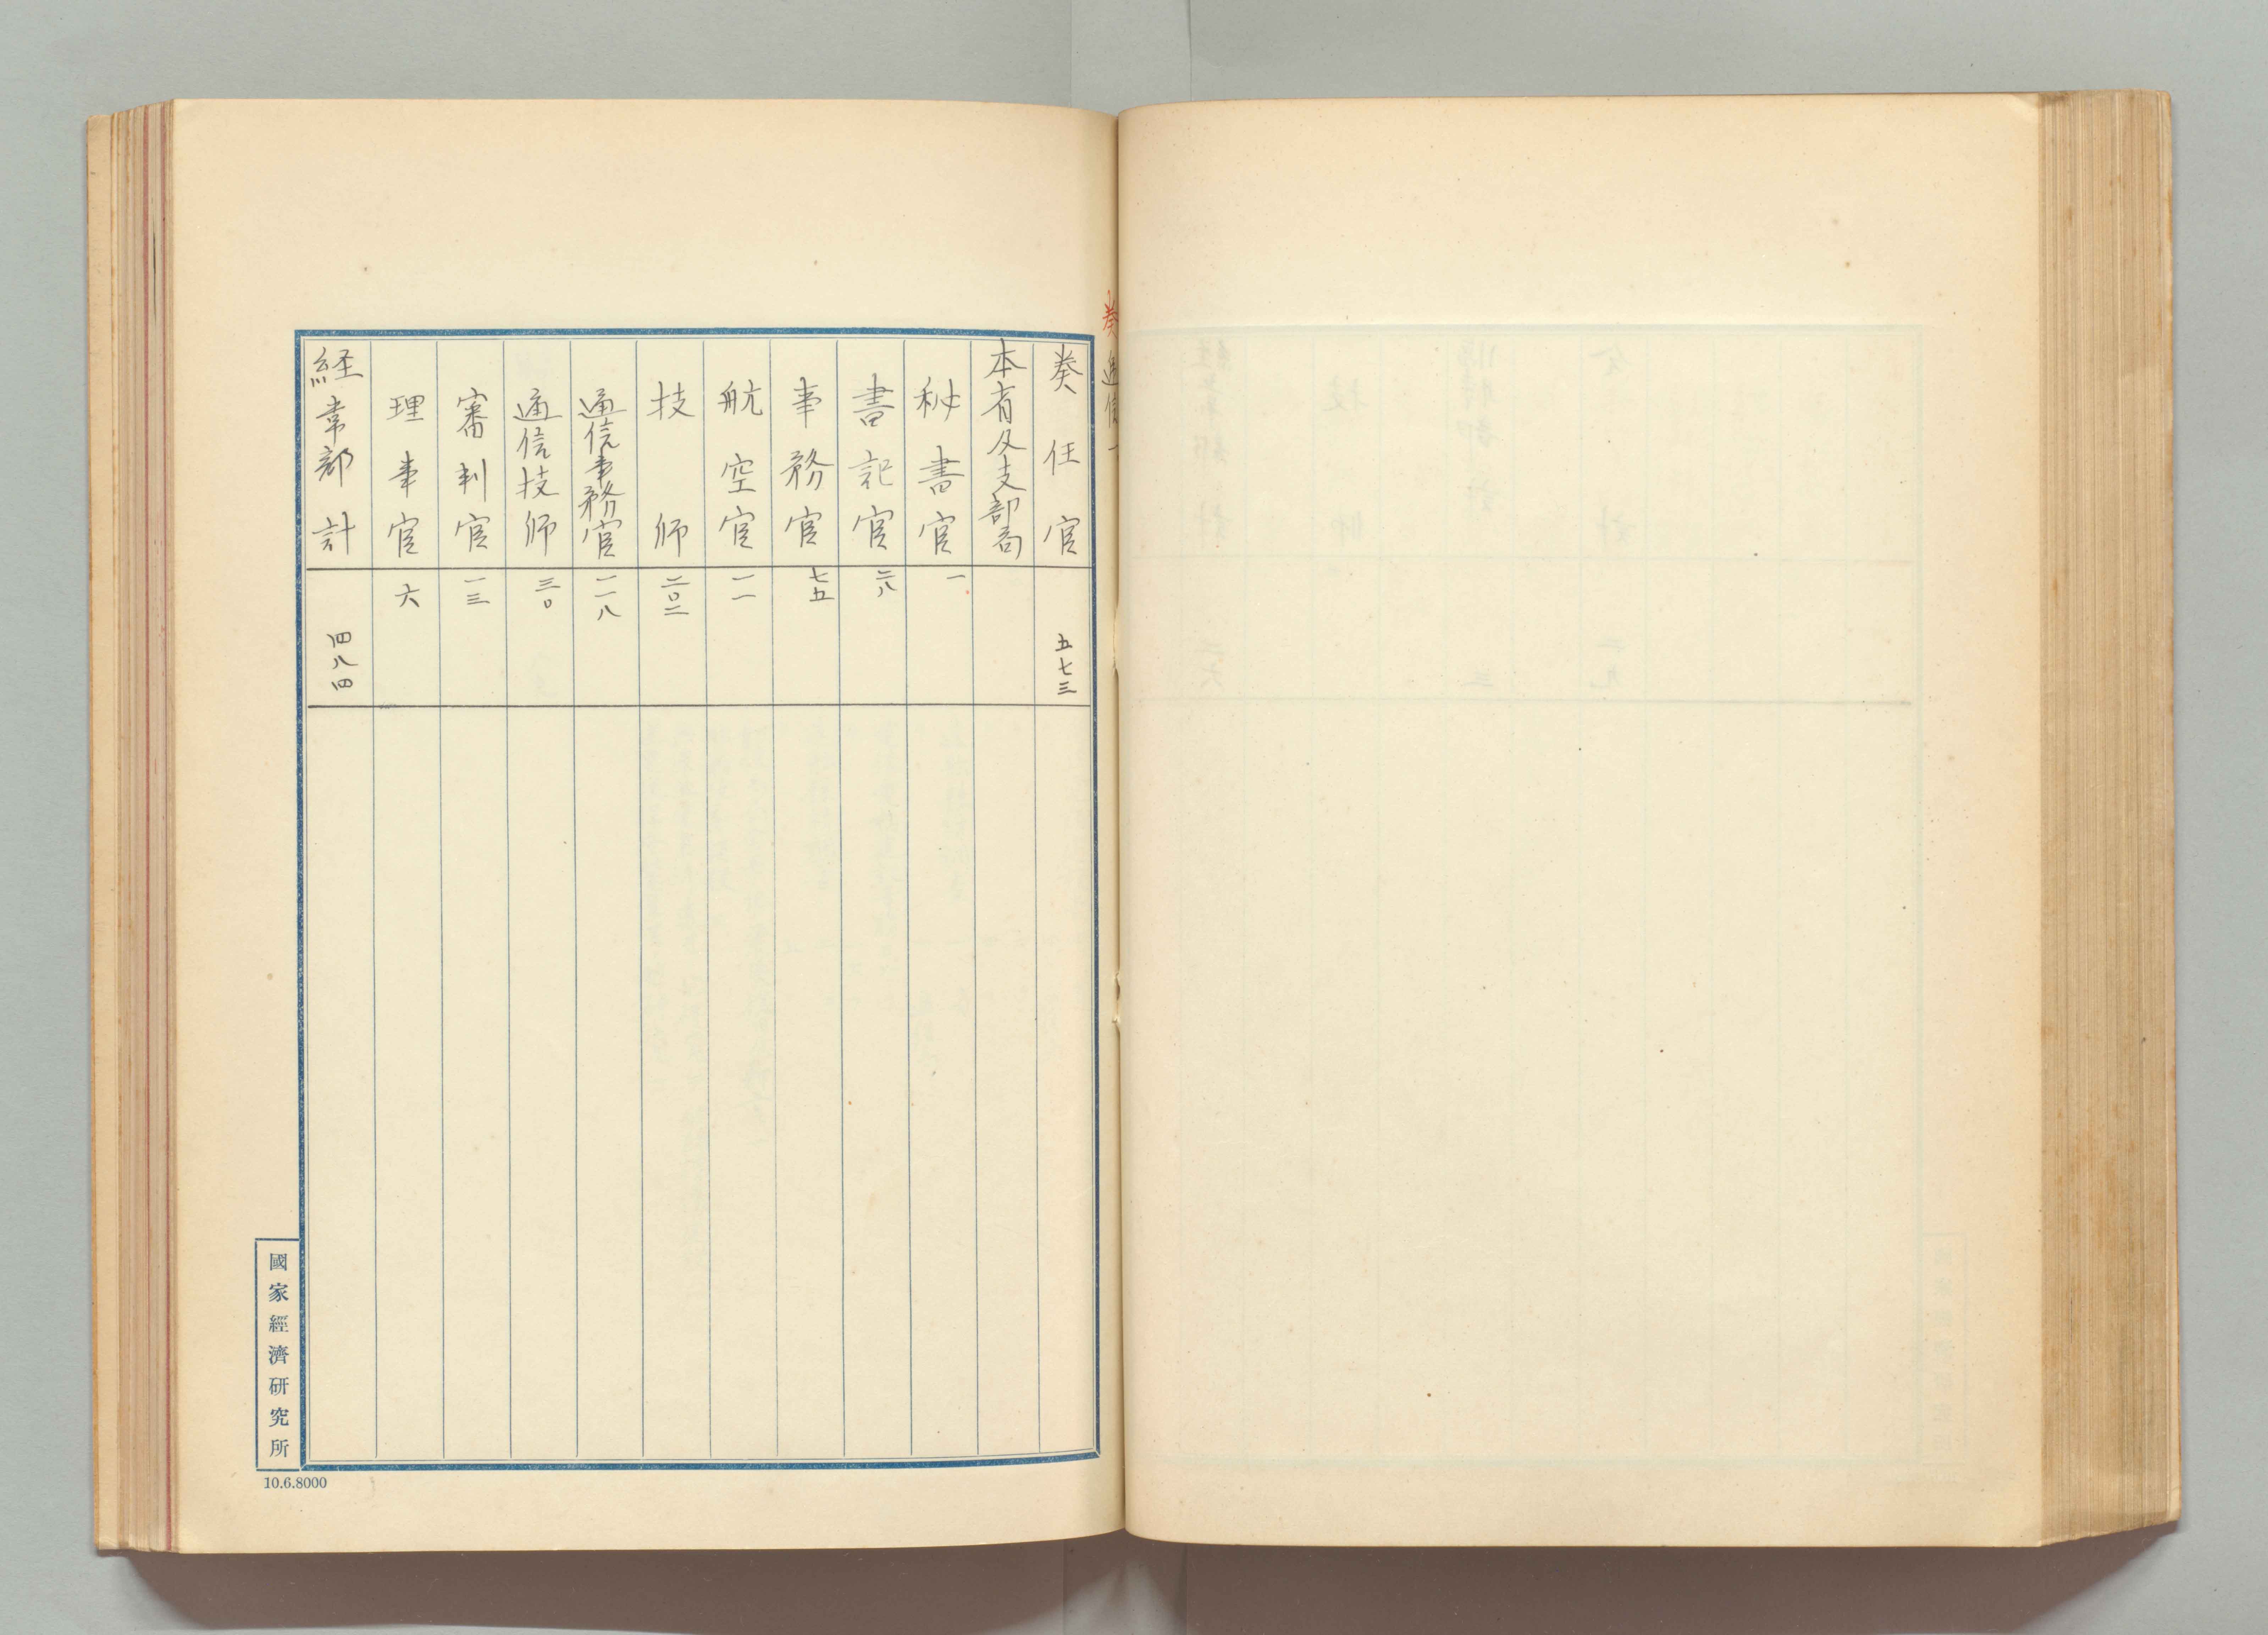 奏任官 五七三
本省及支部局
秘書官 一
書記官 二八
事務官 七五
航空官 一一
技師 二〇二
通信事務官 一一八
通信技師 三〇
審判官 一三
理事官 六
経常部計 四八四
國家經濟研究所
10.6.8000